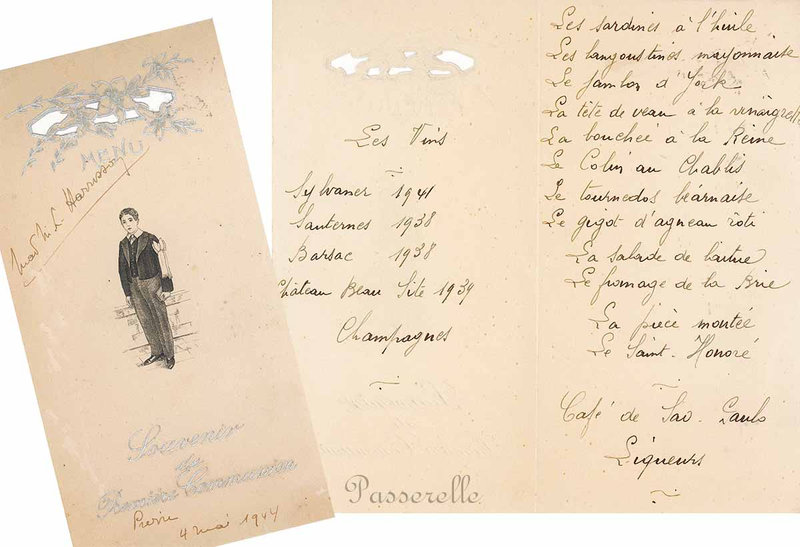 MENU
Mad M. L. Harrisson
Souvenir
de
Première Communion
Pierre
4 mai 1944
Les Vins
Sylvaner 1941
Sauternes 1938
Barsac 1938
Château Beau Site 1939
Champagnes
Les sardines à l'huile
Les langoustines mayonnaise
Le jambon d'York
La tête de veau à la vinaigrette
La bouchée à la Reine
Le Colin au Chablis
Le tournedos béarnaise
Le gigot d'agneau rôti
La salade de laitue
Le fromage de la Brie
La pièce montée
Le Saint-Honoré
Café de Sao-Paulo
Liqueurs
Passerelle